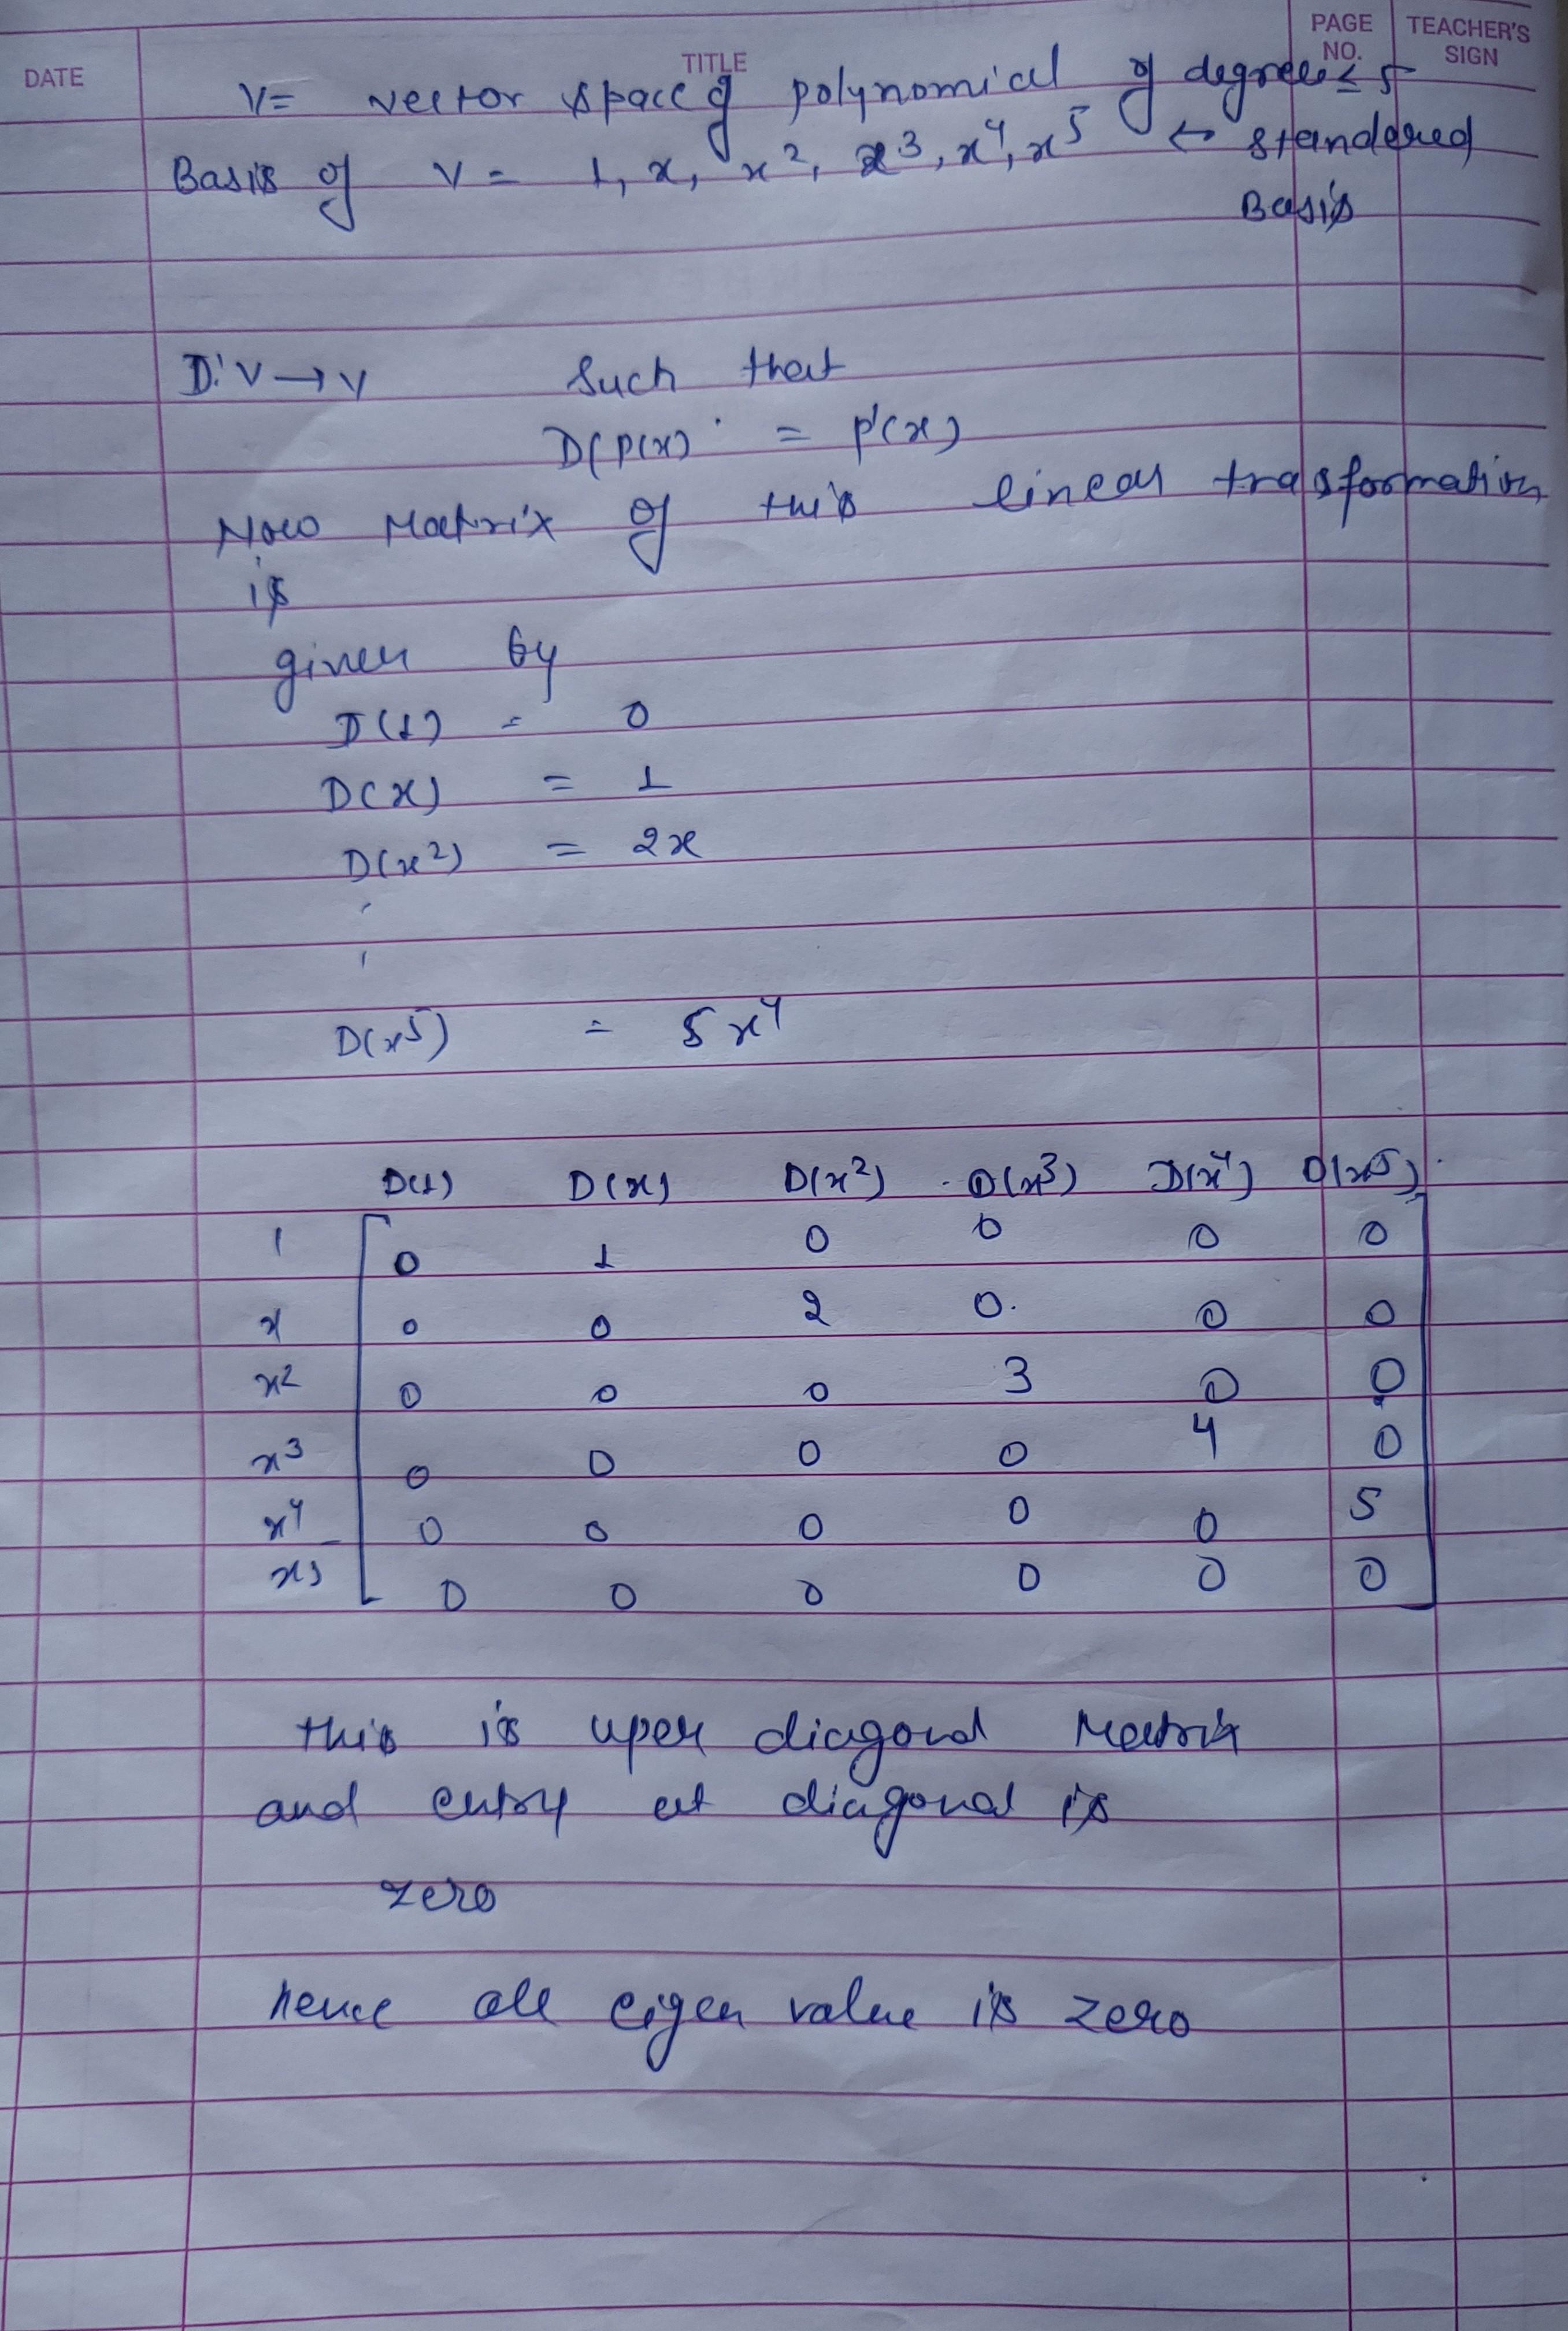 DATE
TITLE
PAGE NO.
TEACHER'S SIGN
V= vector space of polynomial of degree ≤ 5
Basis of V = 1, x, x², x³, x⁴, x⁵ ↔ standered
Basis
D: V → V such that
D(P(x) = P'(x)
Now Matrix of this linear trasformation
is
given by
D(1) = 0
D(x) = 1
D(x²) = 2x
D(x⁵) = 5x⁴
D(1) D(x) D(x²) D(x³) D(x⁴) D(x⁵)
1 0 1 0 0 0 0
x 0 0 2 0 0 0
x² 0 0 0 3 0 0
x³ 0 0 0 0 4 0
x⁴ 0 0 0 0 0 5
x⁵ 0 0 0 0 0 0
this is uper diagonal Matrix
and entry at diagonal is
zero
hence all eigen value is zero